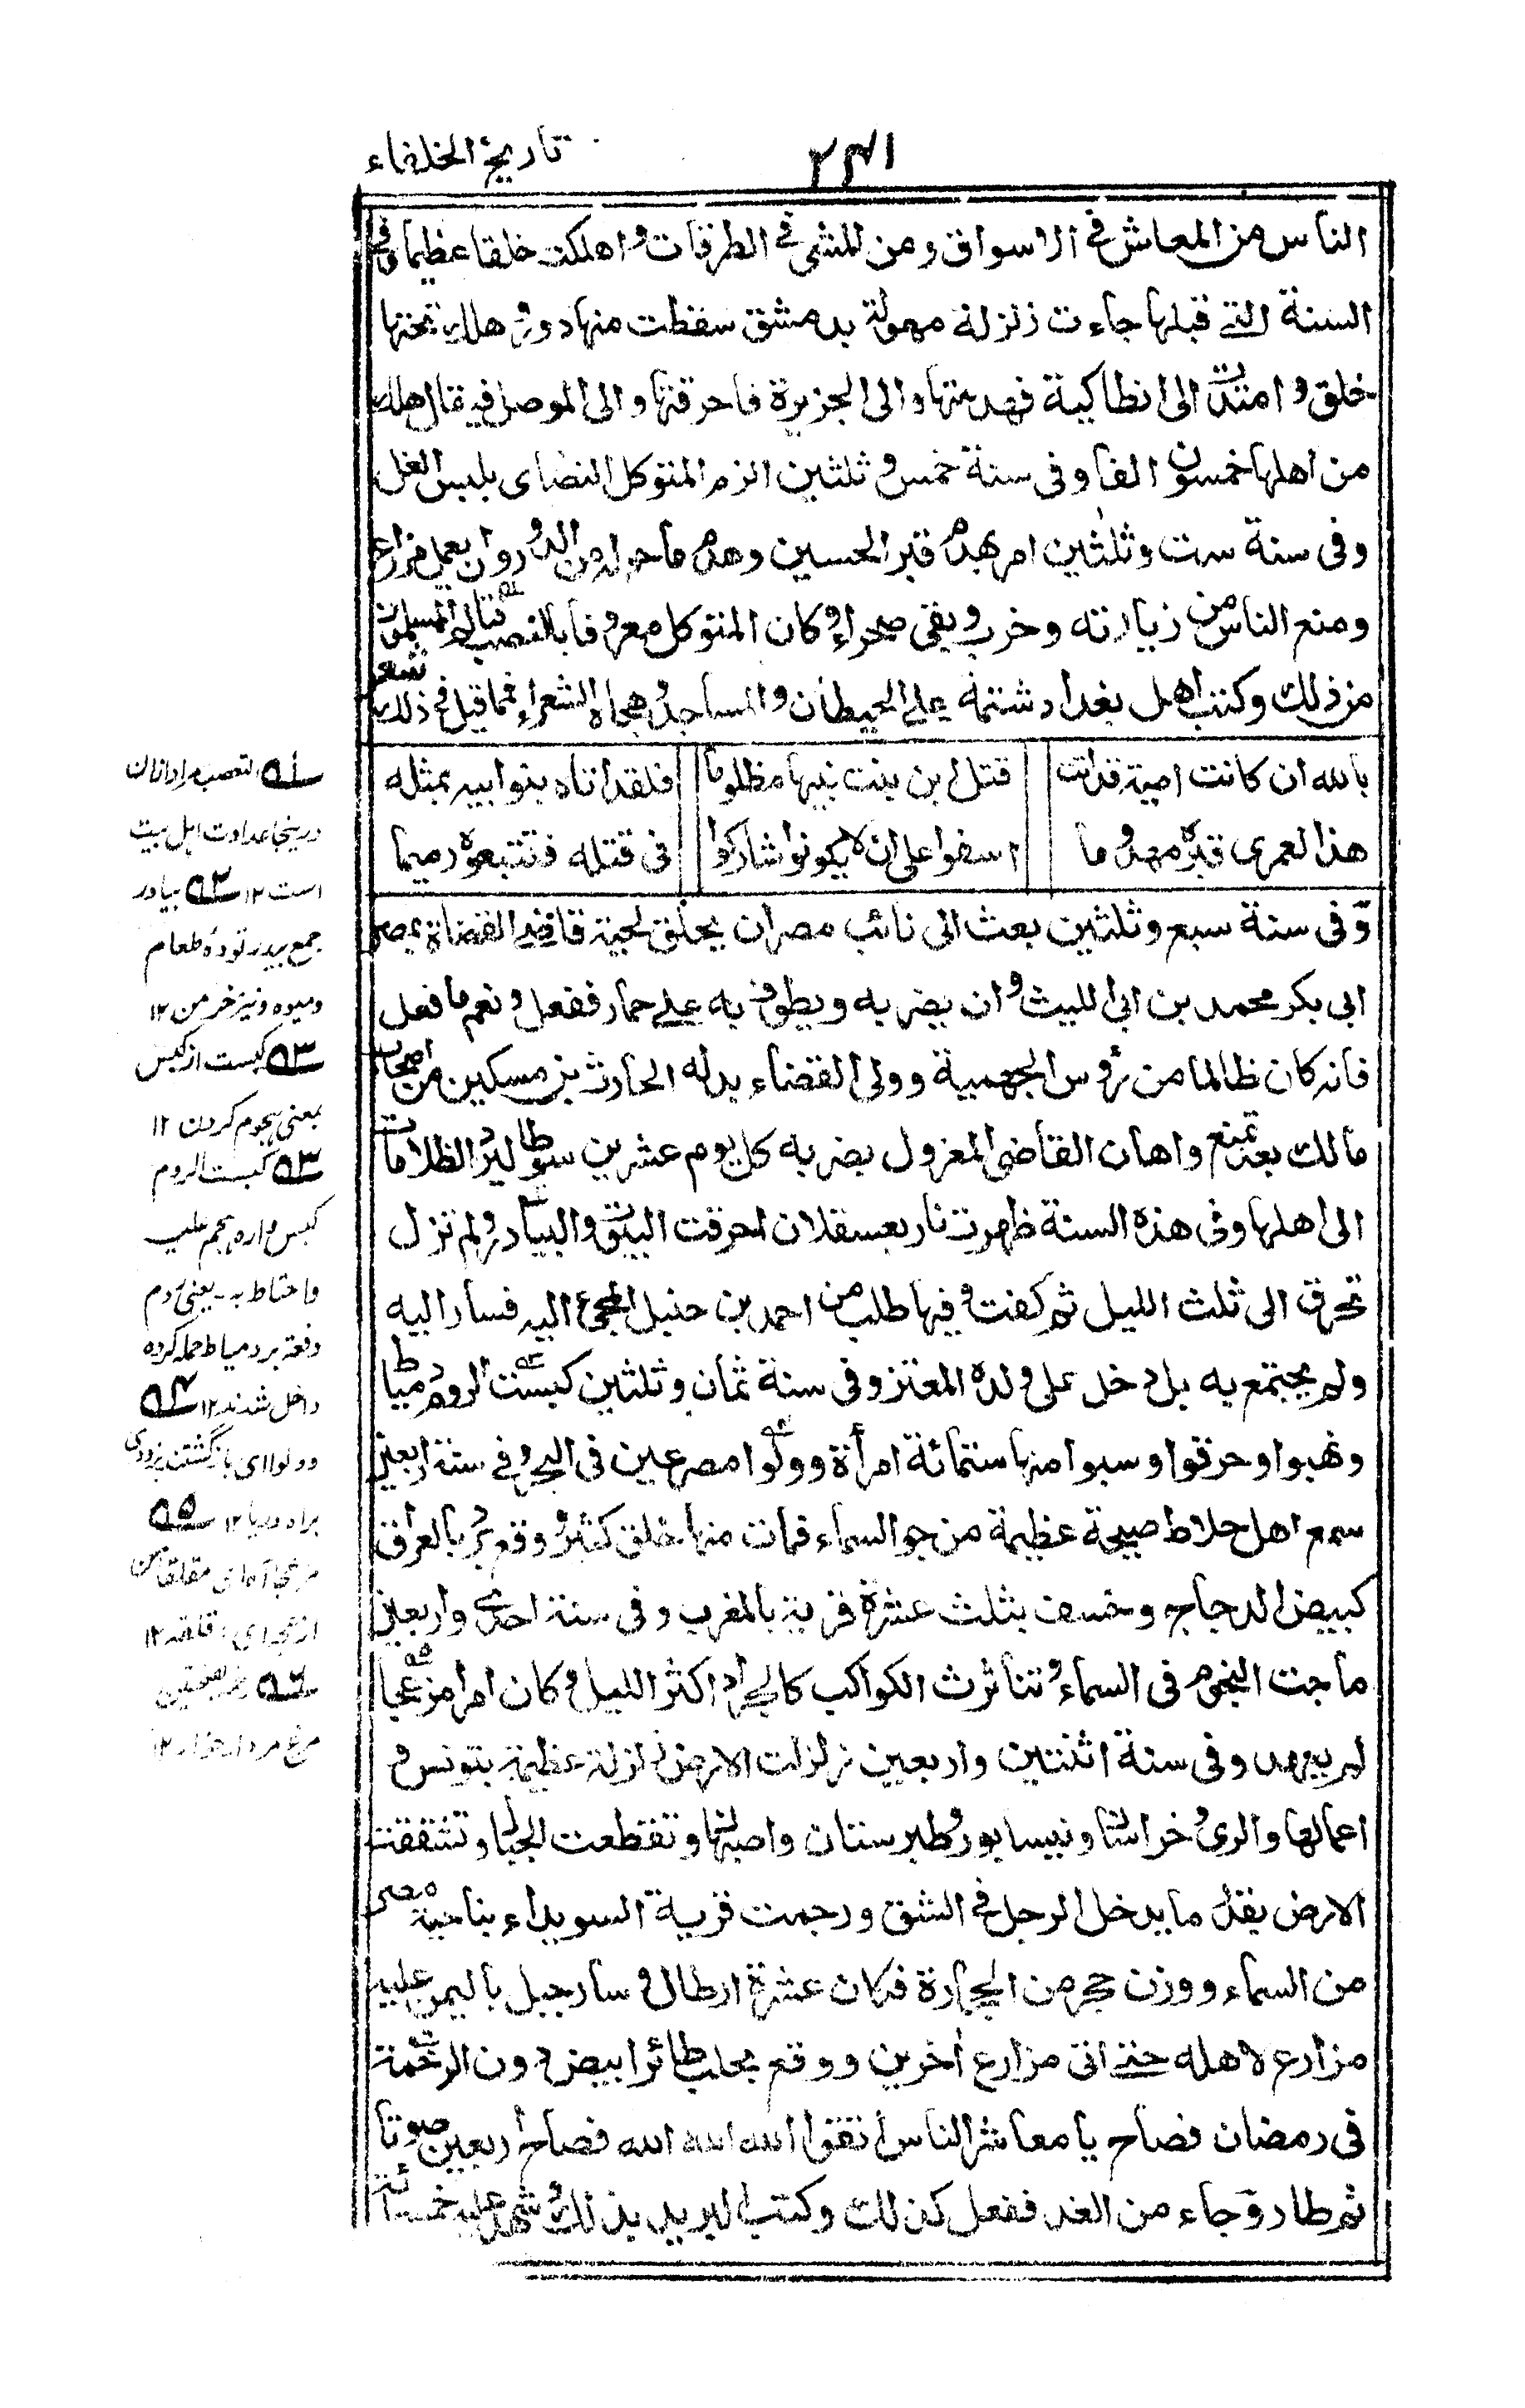 تاريخ الخلفاء
٢٤١
الناس من المعاش في الاسواق ومن المشي في الطرقات واهلكت خلقا عظيما وفي
السنة التي قبلها جاءت زلزلة مهولة بدمشق سقطت منها دور وهلك تحتها
خلق وامتدت الى انطاكية فهدمتها والى الجزيرة فاحرقتها والى الموصل فيقال هلك
من اهلها خمسون الفا وفى سنة خمس وثلثين الزم المتوكل النصاى بلبس الغل
وفى سنة ست وثلثين امر بهدم قبر الحسين وهدم ما حوله من الدور وان يعمل مزارع
ومنع الناس من زيارته وخرب وبقى صحراء وكان المتوكل معروفا بالتعصب فتالم المسلمون
من ذلك وكتب اهل بغداد شتمه على الحيطان والمساجد وهجاه الشعراء فمما قيل في ذلك شعر
بالله ان كانت امية قد اتت قتل ابن بنت نبيها مظلوما فلقد اتاه بنوابيه بمثله
هذا لعمرى قبره مهدوما اسفوا على ان لا يكونوا شاركوا فى قتله فتتبعوه رميما
وفى سنة سبع وثلثين بعث الى نائب مصر ان يحلق لحية قاضي القضاة بمصر
ابى بكر محمد بن ابى الليث وان يضربه ويطوف به على حمار ففعل ونعم ما فعل
فانه كان ظالما من رؤس الجهمية وولى القضاء بدله الحارث بن مسكين من اصحاب
مالك بعد تمنع واهان القاضى المعزول بضربه كل يوم عشرين سوطا ليرد الظلامات
الى اهلها وفى هذه السنة ظهرت نار بعسقلان احرقت البيوت والبيادر ولم تزل
تحرق الى ثلث الليل ثم كفت وفيها طلب من احمد بن حنبل المجئ اليه فسار اليه
ولم يجتمع به بل دخل على ولده المعتز وفى سنة ثمان وثلثين كبست الروم دمياط
ونهبوا وحرقوا وسبوا منها ستمائة امرأة وولوا مصرعين فى البحر وفي سنة اربعين
سمع اهل خلاط صيحة عظيمة من جو السماء فمات منها خلق كثير ووقع برد بالعراق
كبيض الدجاج وخسف بثلث عشرة قرية بالمغرب وفى سنة احدى واربعين
ماجت النجوم فى السماء وتناثرت الكواكب كالجراد اكثر الليل وكان امرا مزعجا
لم يعهد وفى سنة اثنتين واربعين زلزلت الارض زلزلة عظيمة بتونس و
اعمالها والرى وخراسان ونيسابور وطبرستان واصبهان وتقطعت الجبال وتشققت
الارض بقدر ما يدخل الرجل في الشق ورجمت قرية السويداء بناحية مصر
من السماء ووزن حجر من الحجارة فكان عشرة ارطال وسار جبل باليمن عليه
مزارع لاهله حتى اتى مزارع اخرين ووقع بحلب طائر ابيض دون الرخمة
فى رمضان فصاح يا معاشر الناس اتقوا الله الله الله فصاح اربعين صوتا
ثم طار وجاء من الغد ففعل كذلك وكتب البريد بذلك وشهد عليه خمسمائة
درينجا عداوت اہل بیت
است ١٢ بيادر
جمع بيدر تودهٔ طعام
وميوه ونيز خرمن ١٢
كبست از كبس
بمعنى ہجوم كردن ١٢
كبست الروم
كبس داره ہجم عليہ
واحتاط به ۔ يعنى روم
دفعة بر دمياط حمله كرده
داخل شدند ١٢
براه دريا ١٢